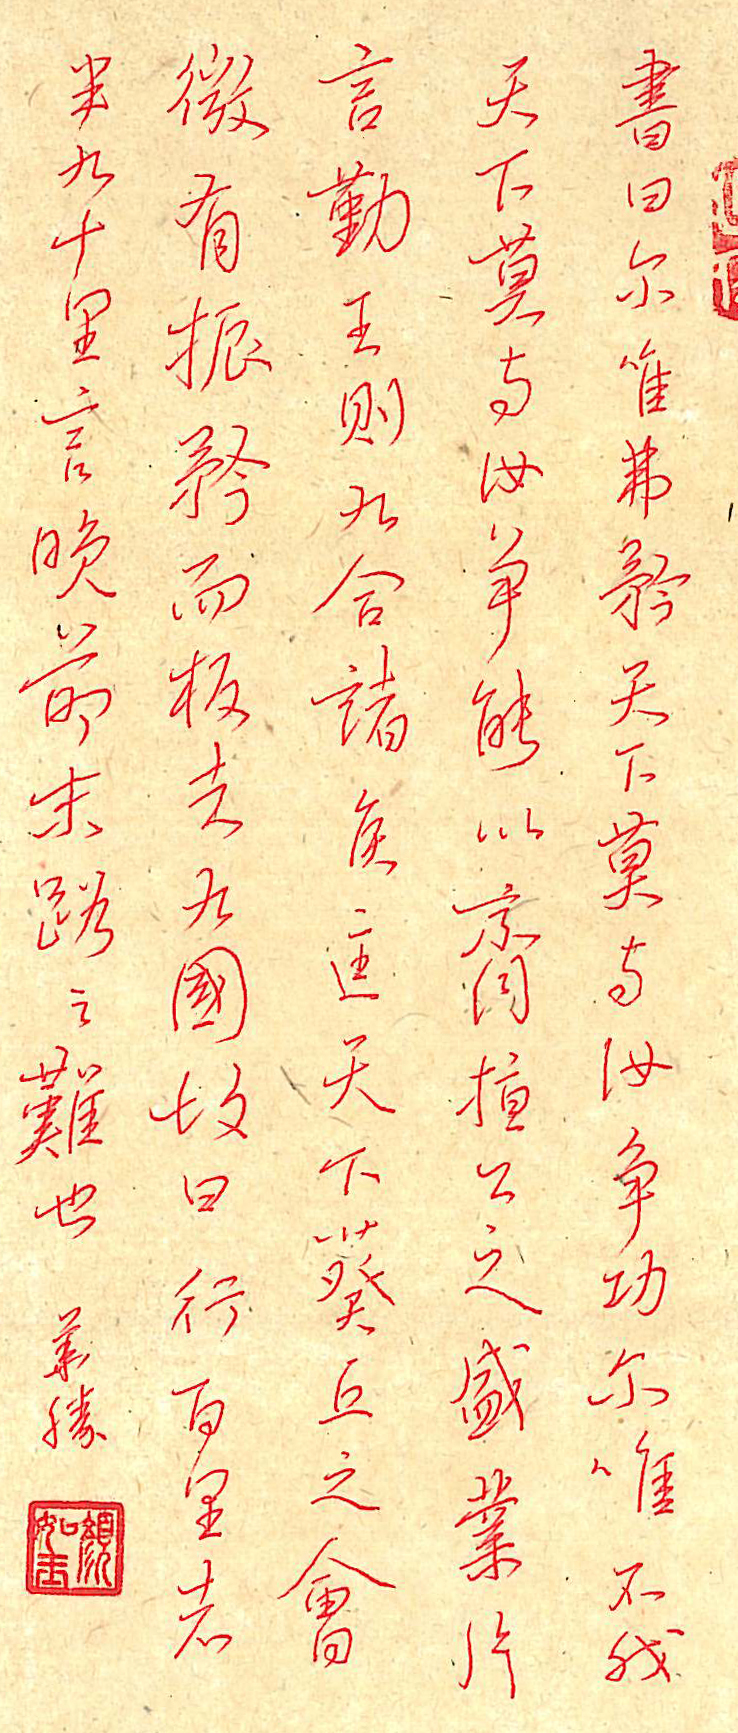 書曰尔唯弗矜天下莫与汝争功尔唯不伐
天下莫与汝争能以齊桓公之盛業片
言勤王則九合諸侯一匡天下葵丘之會
微有振矜而叛者九國故曰行百里者
半九十里言晚節末路之難也
顏如玉